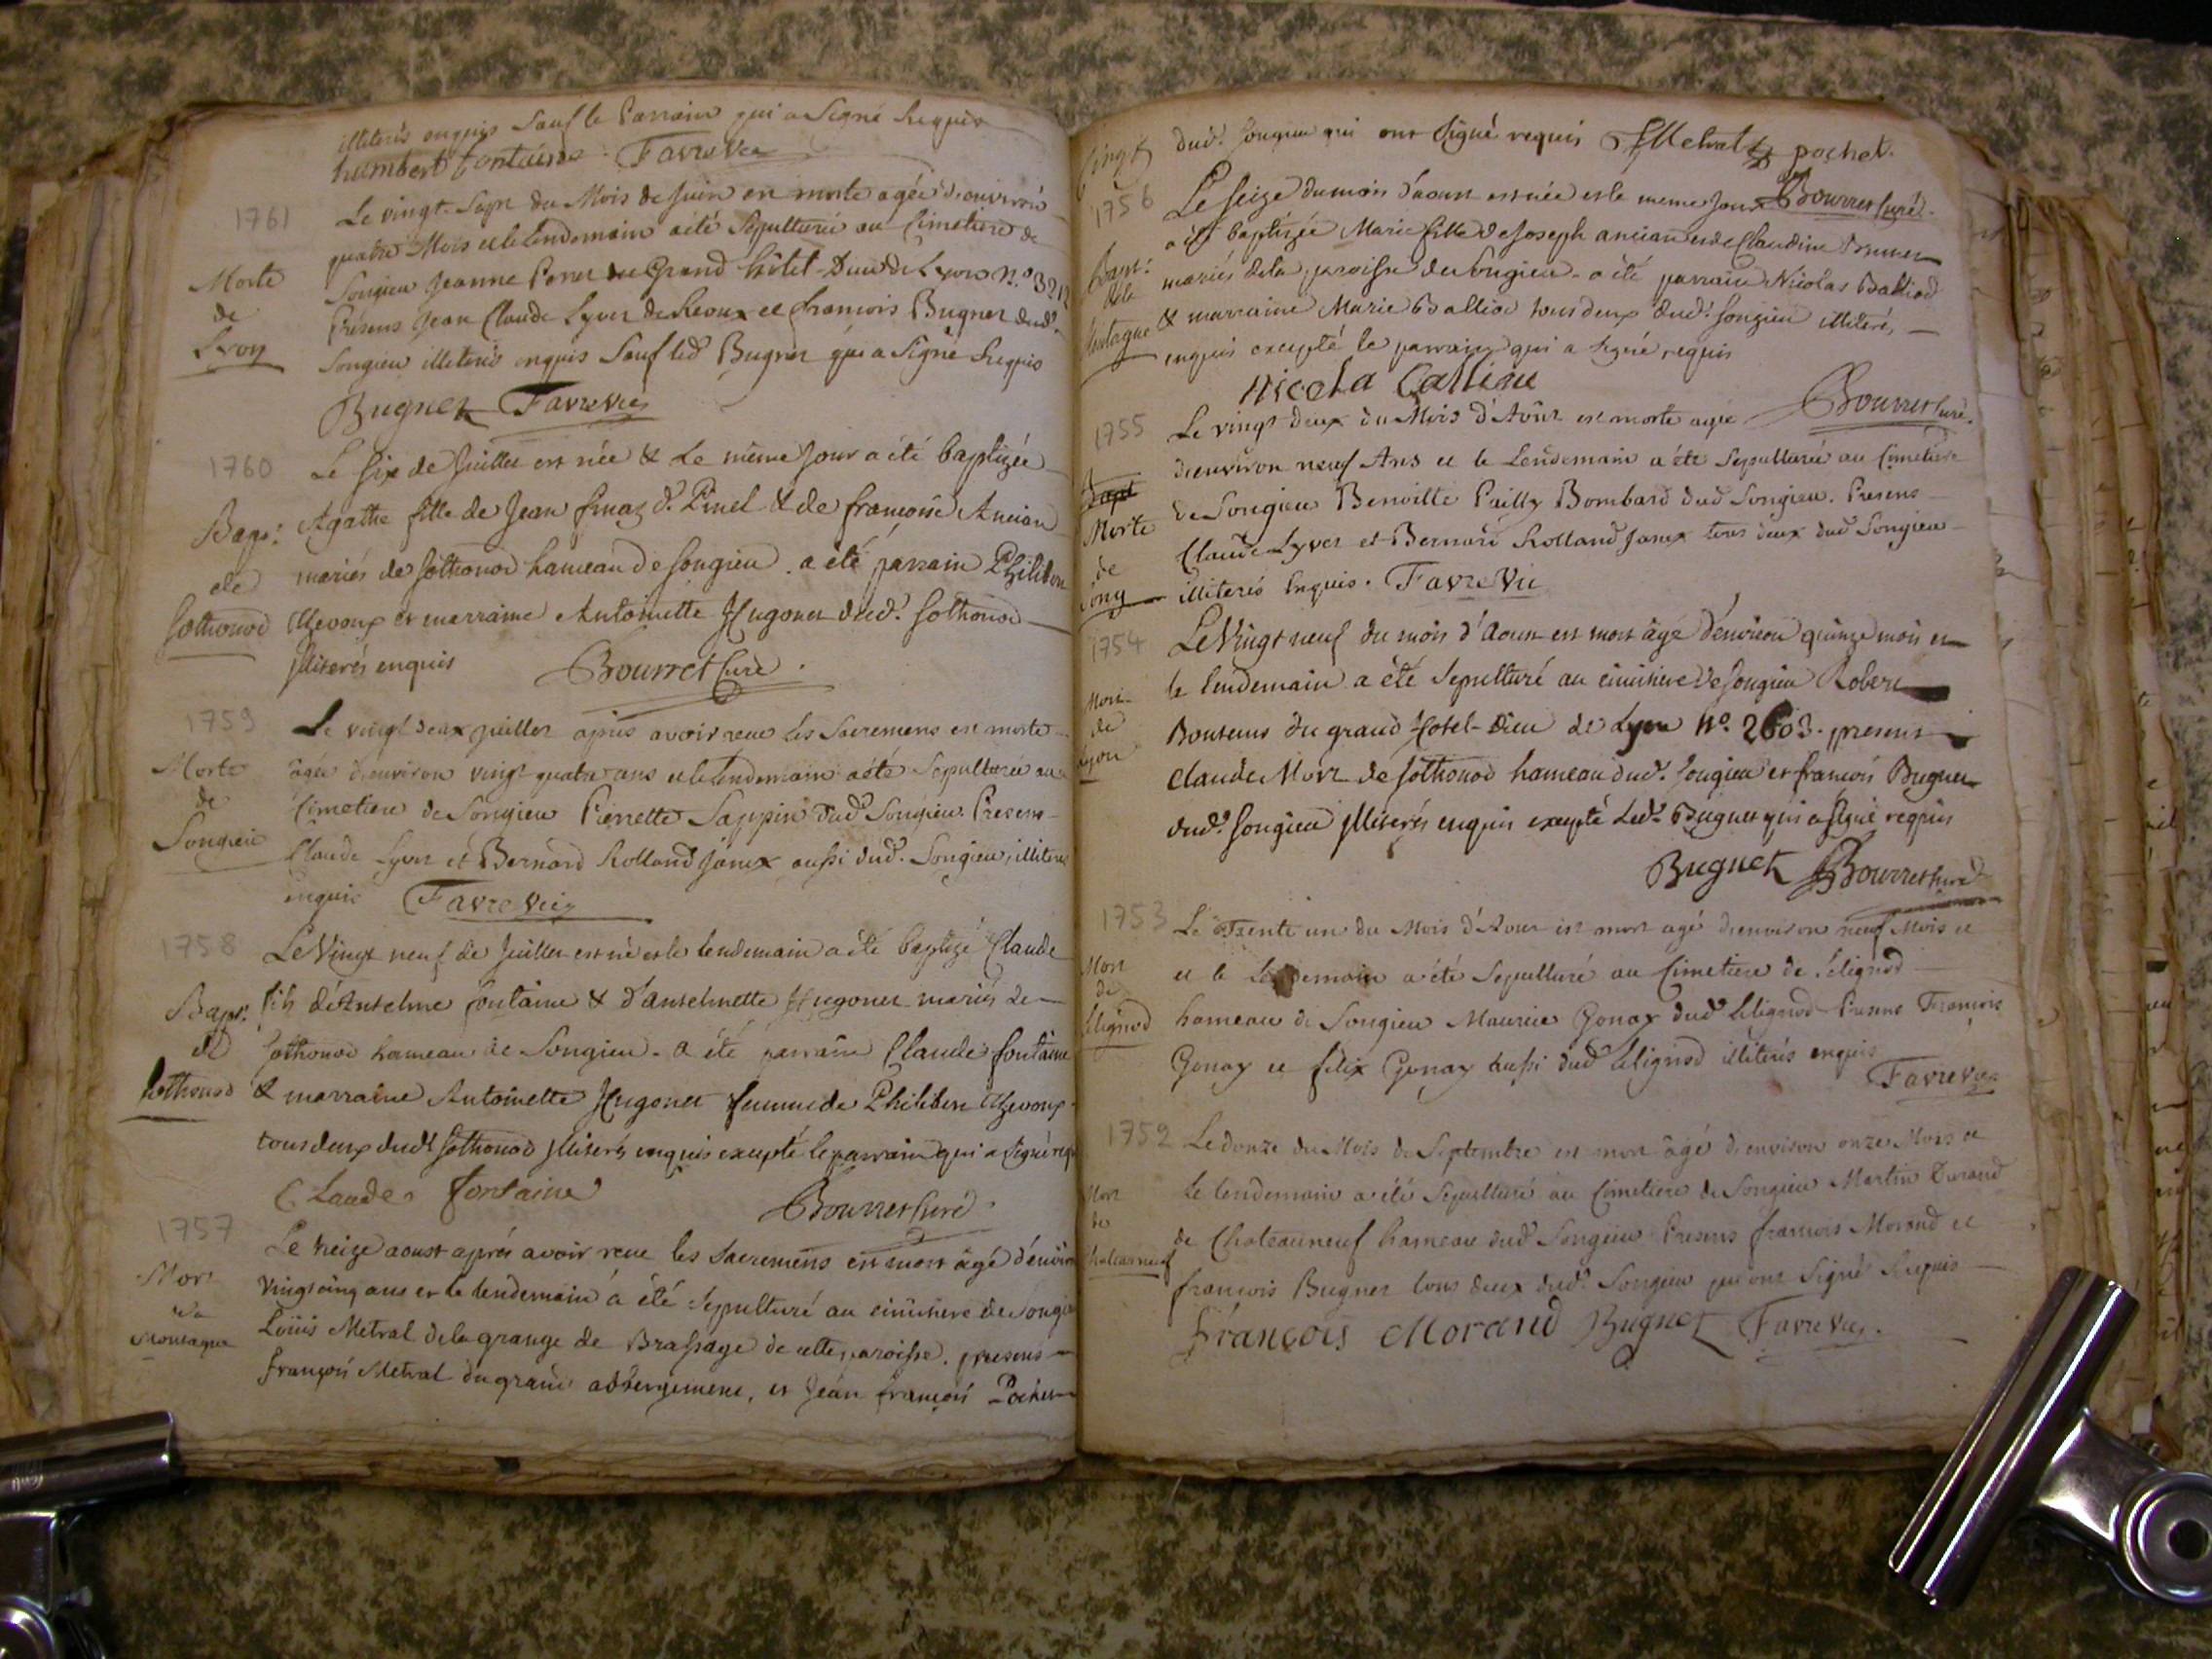 illiterés enquis Sauf le Parrain qui a Signé Requis
humbert fontaine Favre Vic
1761
Le vingt-Sept du Mois de Juin est morte agée d'environ
quatre Mois et le lendemain a été Sepulturée au Cimetiere de
Morte
de
Lyon
Songieu Jeanne Perret du Grand hôtel-Dieu de Lyon N.º
Présens Jean Claude Lyvet de et francois Bugnet dud.
Songieu illiterés enquis Sauf led Bugnet qui a Signé Requis
Bugnet Favre Vic
1760
Le six de Juillet est née & Le même Jour a été baptizée
Bapt:
de
Sothonod
Agathe fille de Jean finaz d. Pinel & de francoise Ancian
mariés de Sothonod hameau de Songieu. a été parrain Philibert
Thevoux et marraine Antoinette Hugonet dud. Sothonod
Illiterés enquis Bourret Curé.
1759
Le vingt deux juillet aprés avoir reçu les Sacremens est morte
Morte
de
Songieu
âgée d'environ vingt quatre ans et le lendemain a été Sepulturée au
Cimetiere de Songieu Pierrette Sappin dud Songieu. Presens
Claude Lyvet et Bernard Rolland Janex aussi dud. Songieu, illiterés
enquis Favre Vic
1758
Le Vingt neuf de Juillet est né et le lendemain a été baptizé Claude
Bapt:
de
Sothonod
fils d'Antelme fontaine & d'antelmette Hugonet mariés de
Sothonod hameau de Songieu. a été parrain Claude fontaine
& marraine Antoinette Hugonet femme de Philibert Thevoux
tous deux dud Sothonod Illiterés enquis excepté le parrain qui a signé req
Claude fontaine Bourret Curé
1757
Le treize aoust aprés avoir reçu les Sacremens est mort âgé d'environ
Mort
de
Montagne
vingt cinq ans et le lendemain a été Sepulturé au cimitiere de Songieu
Loüis Metral de la grange de Brassage de cette paroisse. presens
françois Metral du grand abbergement, et Jean françois Pochet
dud. Songieu qui ont signé requis Metral pochet.
Bourret Curé
1756
Le seize du mois d'aoust est née et le meme jour
Bapt:
de la
Montagne
a été baptizée Marie fille de Joseph ancian et de Claudine Brunet
mariés de la paroisse de Songieu. a été parrain Nicolas Balliod
& marraine Marie Balliod tous deux dud. Songieu illiterés
enquis excepté le parrain qui a signé requis
Nicola Bourret Curé.
1755
Le vingt deux du Mois d'Aoüt est morte agée
Bapt
Morte
de
Song
d'environ neuf Ans et le Lendemain a été Sepulturée au Cimetiere
de Songieu Benoitte Pailly Bombard dud Songieu. Presens
Claude Lyvet et Bernard Rolland Janex tous deux dud Songieu
illiterés Enquis. Favre Vic
1754
Le Vingt neuf du mois d'Aoust est mort âgé d'environ quinze mois et
Mort
de
Lyon
le lendemain a été Sepulturé au cimitiere de Songieu Robert
du grand Hotel-Dieu de Lyon Nº. 2603. presens
claude Mort de Sothonod hameau dud. Songieu et françois Bugnet
dud. Songieu Illiterés enquis excepté Led. Bugnet qui a signé requis
Bugnet Bourret Curé
1753
Le Trente un du Mois d'Aout est mort agé d'environ neuf Mois et
Mort
de
Lelignod
et le Lendemain a été Sepulturé au Cimetiere de Lelignod
hameau de Songieu Maurice Gonay dud Lelignod Presens Francois
Gonay et felix Gonay aussi dud Lelignod illiterés enquis
Favre Vic
1752
Le douze du Mois de Septembre est mort âgé d'environ onze Mois et
Mort
de
Chateauneuf
le lendemain a été Sepulturé au Cimetiere de Songieu Martin Durand
de Chateauneuf hameau dud Songieu Presens francois Morand et
francois Bugnet tous deux dud. Songieu qui ont Signé Requis
françois Morand Bugnet Favre Vic.